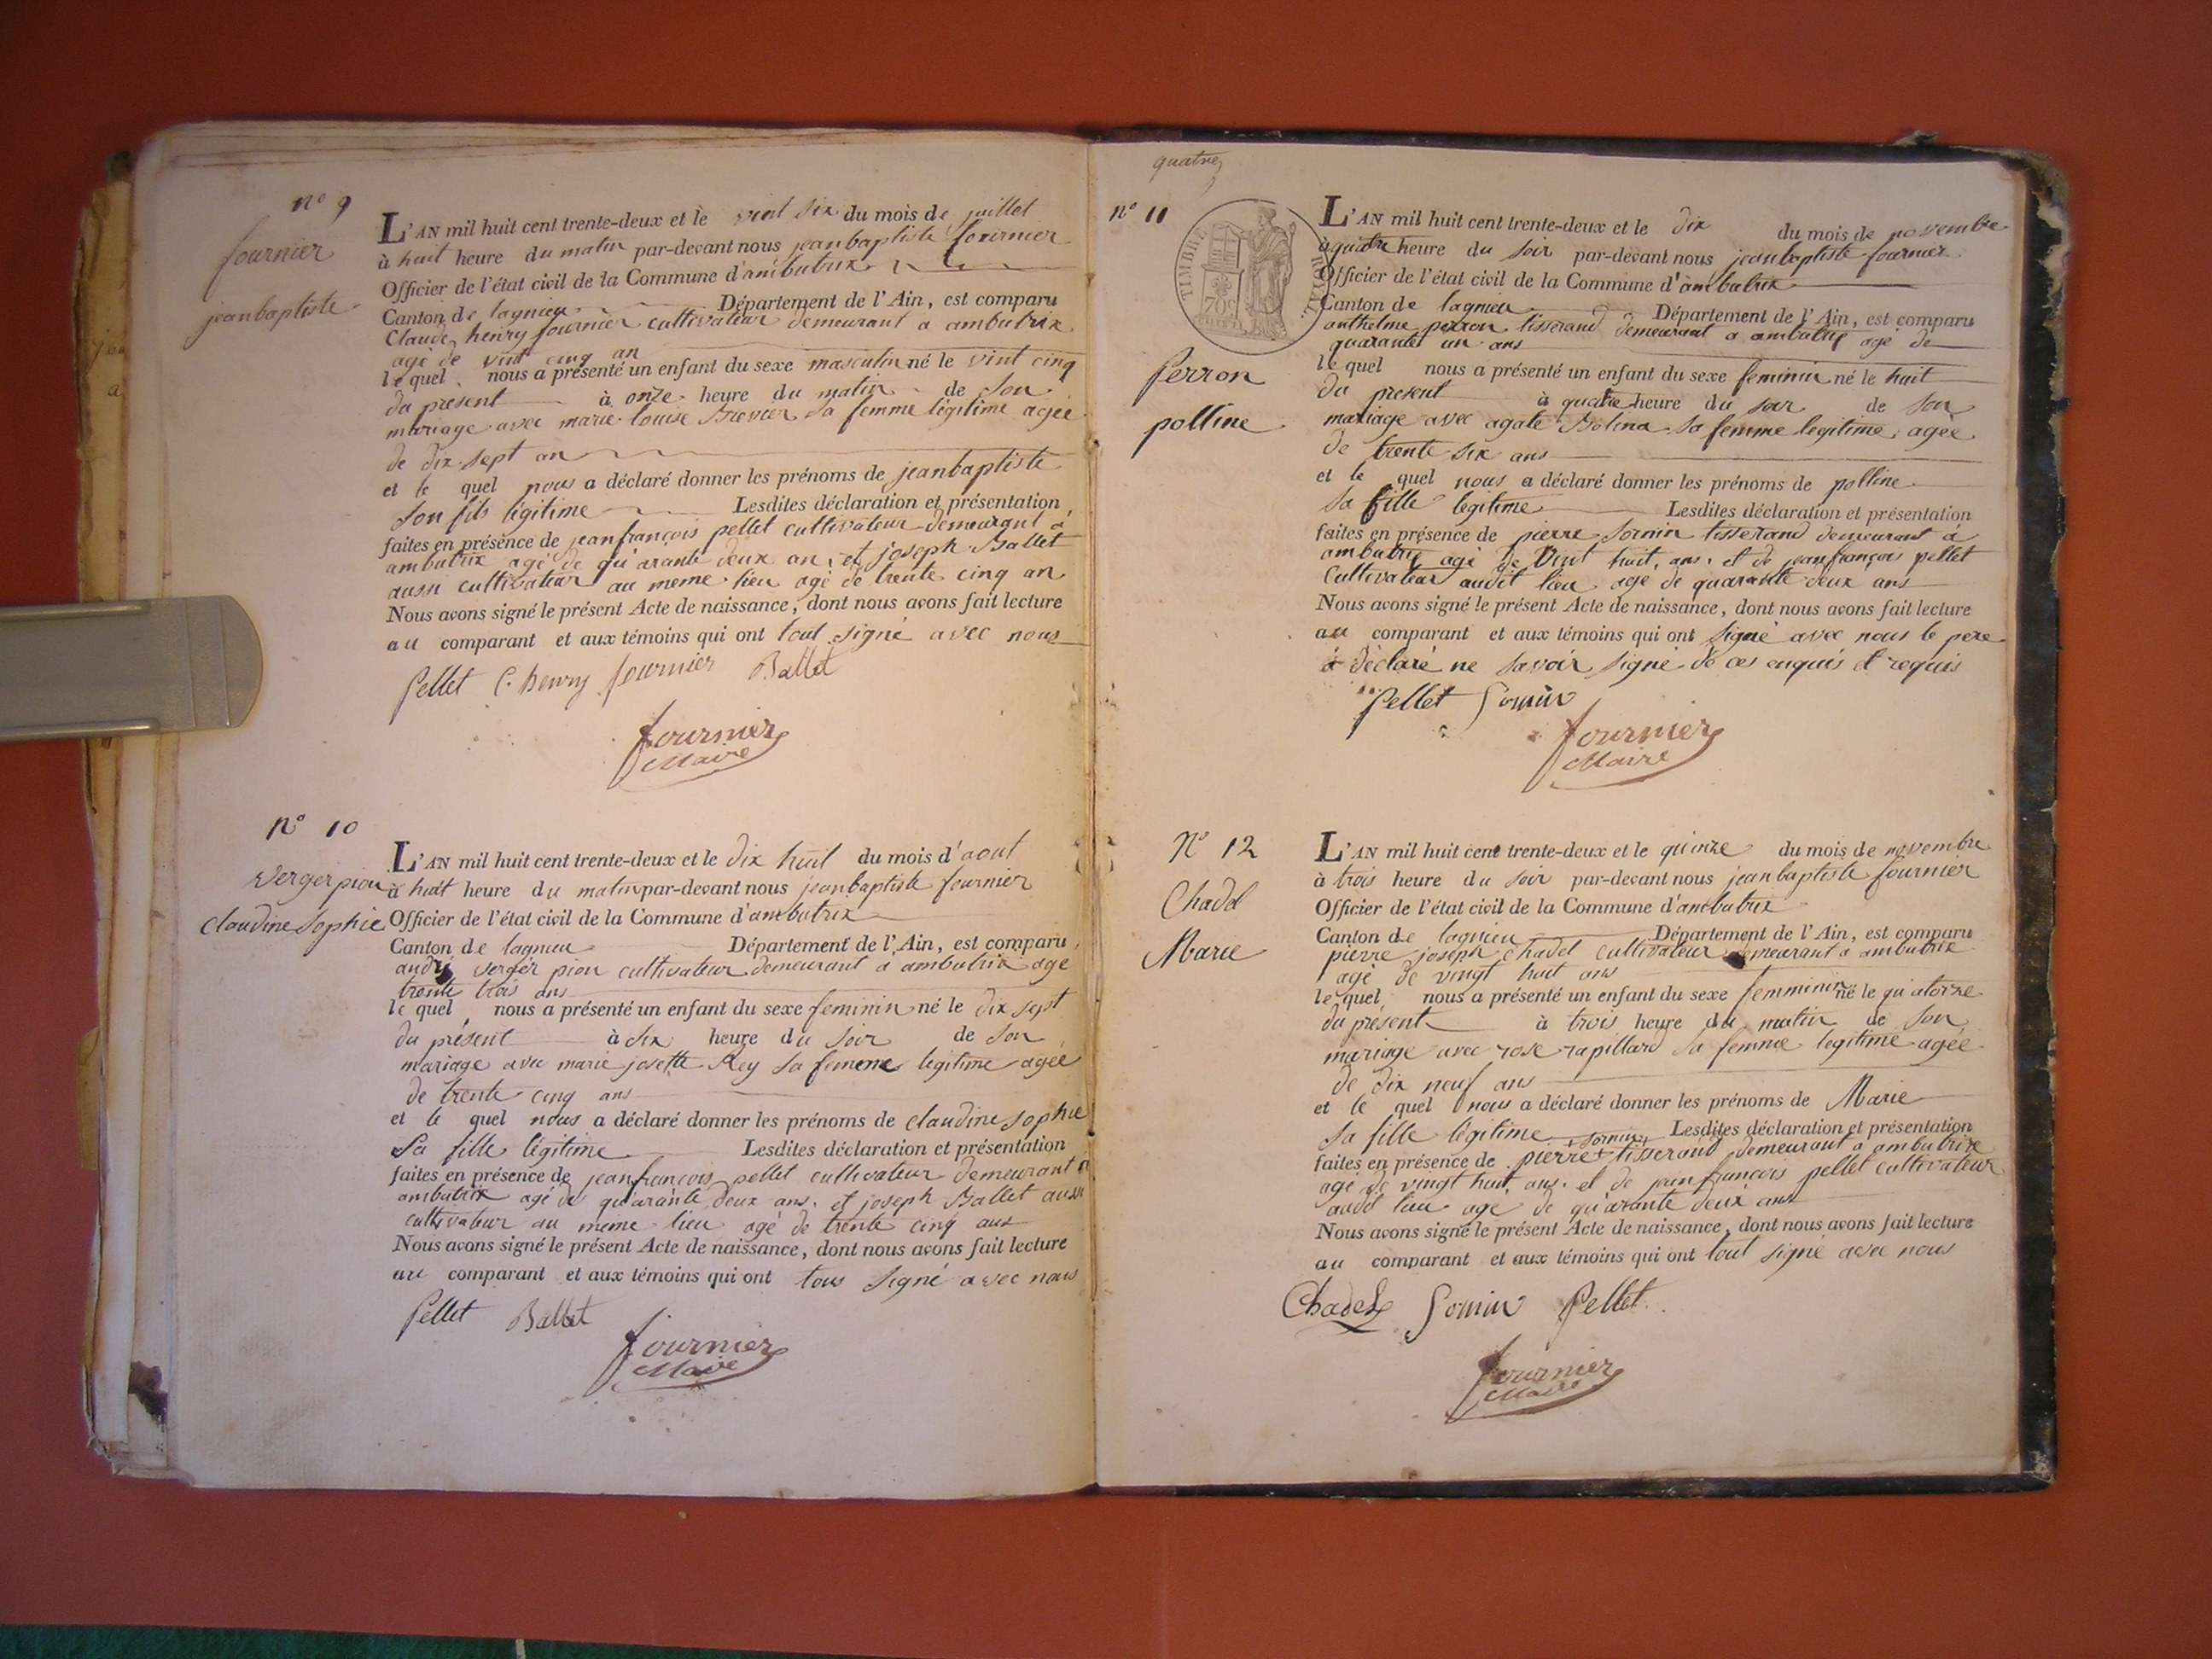 n° 9
fournier
jeanbaptiste
L'AN mil huit cent trente-deux et le vint six du mois de juillet
à huit heure du matin par-devant nous jeanbaptiste fournier
Officier de l'état civil de la Commune d'ambutrix
Canton de lagnieu Département de l'Ain, est comparu
Claude henry fournier cultivateur demeurant a ambutrix
agé de vint cinq an
le quel nous a présenté un enfant du sexe masculin né le vint cinq
du present à onze heure du matin de son
mariage avec marie louise sa femme légitime agée
de dix sept an
et le quel nous a déclaré donner les prénoms de jeanbaptiste
son fils légitime Lesdites déclaration et présentation
faites en présence de jeanfrançois pellet cultivateur demeurant a
ambutrix agé de quarante deux an, et joseph Ballet
aussi cultivateur au meme lieu agé de trente cinq an
Nous avons signé le présent Acte de naissance, dont nous avons fait lecture
au comparant et aux témoins qui ont tout signé avec nous
Pellet C. henry fournier Ballet
fournier
Maire
n° 10
Verger pion
Claudine Sophie
L'AN mil huit cent trente-deux et le dix huit du mois d'aout
à huit heure du matin par-devant nous jeanbaptiste fournier
Officier de l'état civil de la Commune d'ambutrix
Canton de lagnieu Département de l'Ain, est comparu
andré verger pion cultivateur demeurant a ambutrix agé
trente trois ans
le quel nous a présenté un enfant du sexe feminin né le dix sept
du présent à six heure du soir de son
mariage avec marie josette Rey sa femme légitime agée
de trente cinq ans
et le quel nous a déclaré donner les prénoms de claudine sophie
Sa fille légitime Lesdites déclaration et présentation
faites en présence de jeanfrançois pellet cultivateur demeurant a
ambutrix agé de quarante deux ans. et joseph Ballet aussi
cultivateur au meme lieu agé de trente cinq ans
Nous avons signé le présent Acte de naissance, dont nous avons fait lecture
au comparant et aux témoins qui ont tous signé avec nous
Pellet Ballet
fournier
Maire
quatre
n° 11
TIMBRE ROYAL
70c
Perron
polline
L'AN mil huit cent trente-deux et le dix du mois de novembre
à quatre heure du soir par-devant nous jeanbaptiste fournier
Officier de l'état civil de la Commune d'ambutrix
Canton de lagnieu Département de l'Ain, est comparu
anthelme perron tisserand demeurant a ambutrix agé de
quarante un ans
le quel nous a présenté un enfant du sexe feminin né le huit
du present à quatre heure du soir de son
mariage avec agate Bolina sa femme legitime agée
de trente six ans
et le quel nous a déclaré donner les prénoms de polline
sa fille legitime Lesdites déclaration et présentation
faites en présence de pierre Sornin tisserand demeurant a
ambutrix agé de vint huit ans. et de jeanfrançois pellet
Cultivateur audit lieu agé de quarante deux ans
Nous avons signé le présent Acte de naissance, dont nous avons fait lecture
au comparant et aux témoins qui ont signé avec nous le pere
a déclaré ne savoir signé de ces enquis et requis
Pellet Sornin
fournier
Maire
N° 12
Chadel
Marie
L'AN mil huit cent trente-deux et le quinze du mois de novembre
à trois heure du soir par-devant nous jeanbaptiste fournier
Officier de l'état civil de la Commune d'ambutrix
Canton de lagnieu Département de l'Ain, est comparu
pierre joseph Chadel cultivateur demeurant a ambutrix
agé de vingt huit ans
le quel nous a présenté un enfant du sexe femminin né le quatorze
du présent à trois heure du matin de son
mariage avec rose rapillard sa femme legitime agée
de dix neuf ans
et le quel nous a déclaré donner les prénoms de Marie
sa fille légitime Lesdites déclaration et présentation
faites en présence de pierre + Sornin + tisserand demeurant a ambutrix
agé de vingt huit ans. et de jean françois pellet cultivateur
audit lieu agé de quarante deux ans
Nous avons signé le présent Acte de naissance, dont nous avons fait lecture
au comparant et aux témoins qui ont tout signé avec nous
Chadel Sornin Pellet
fournier
Maire